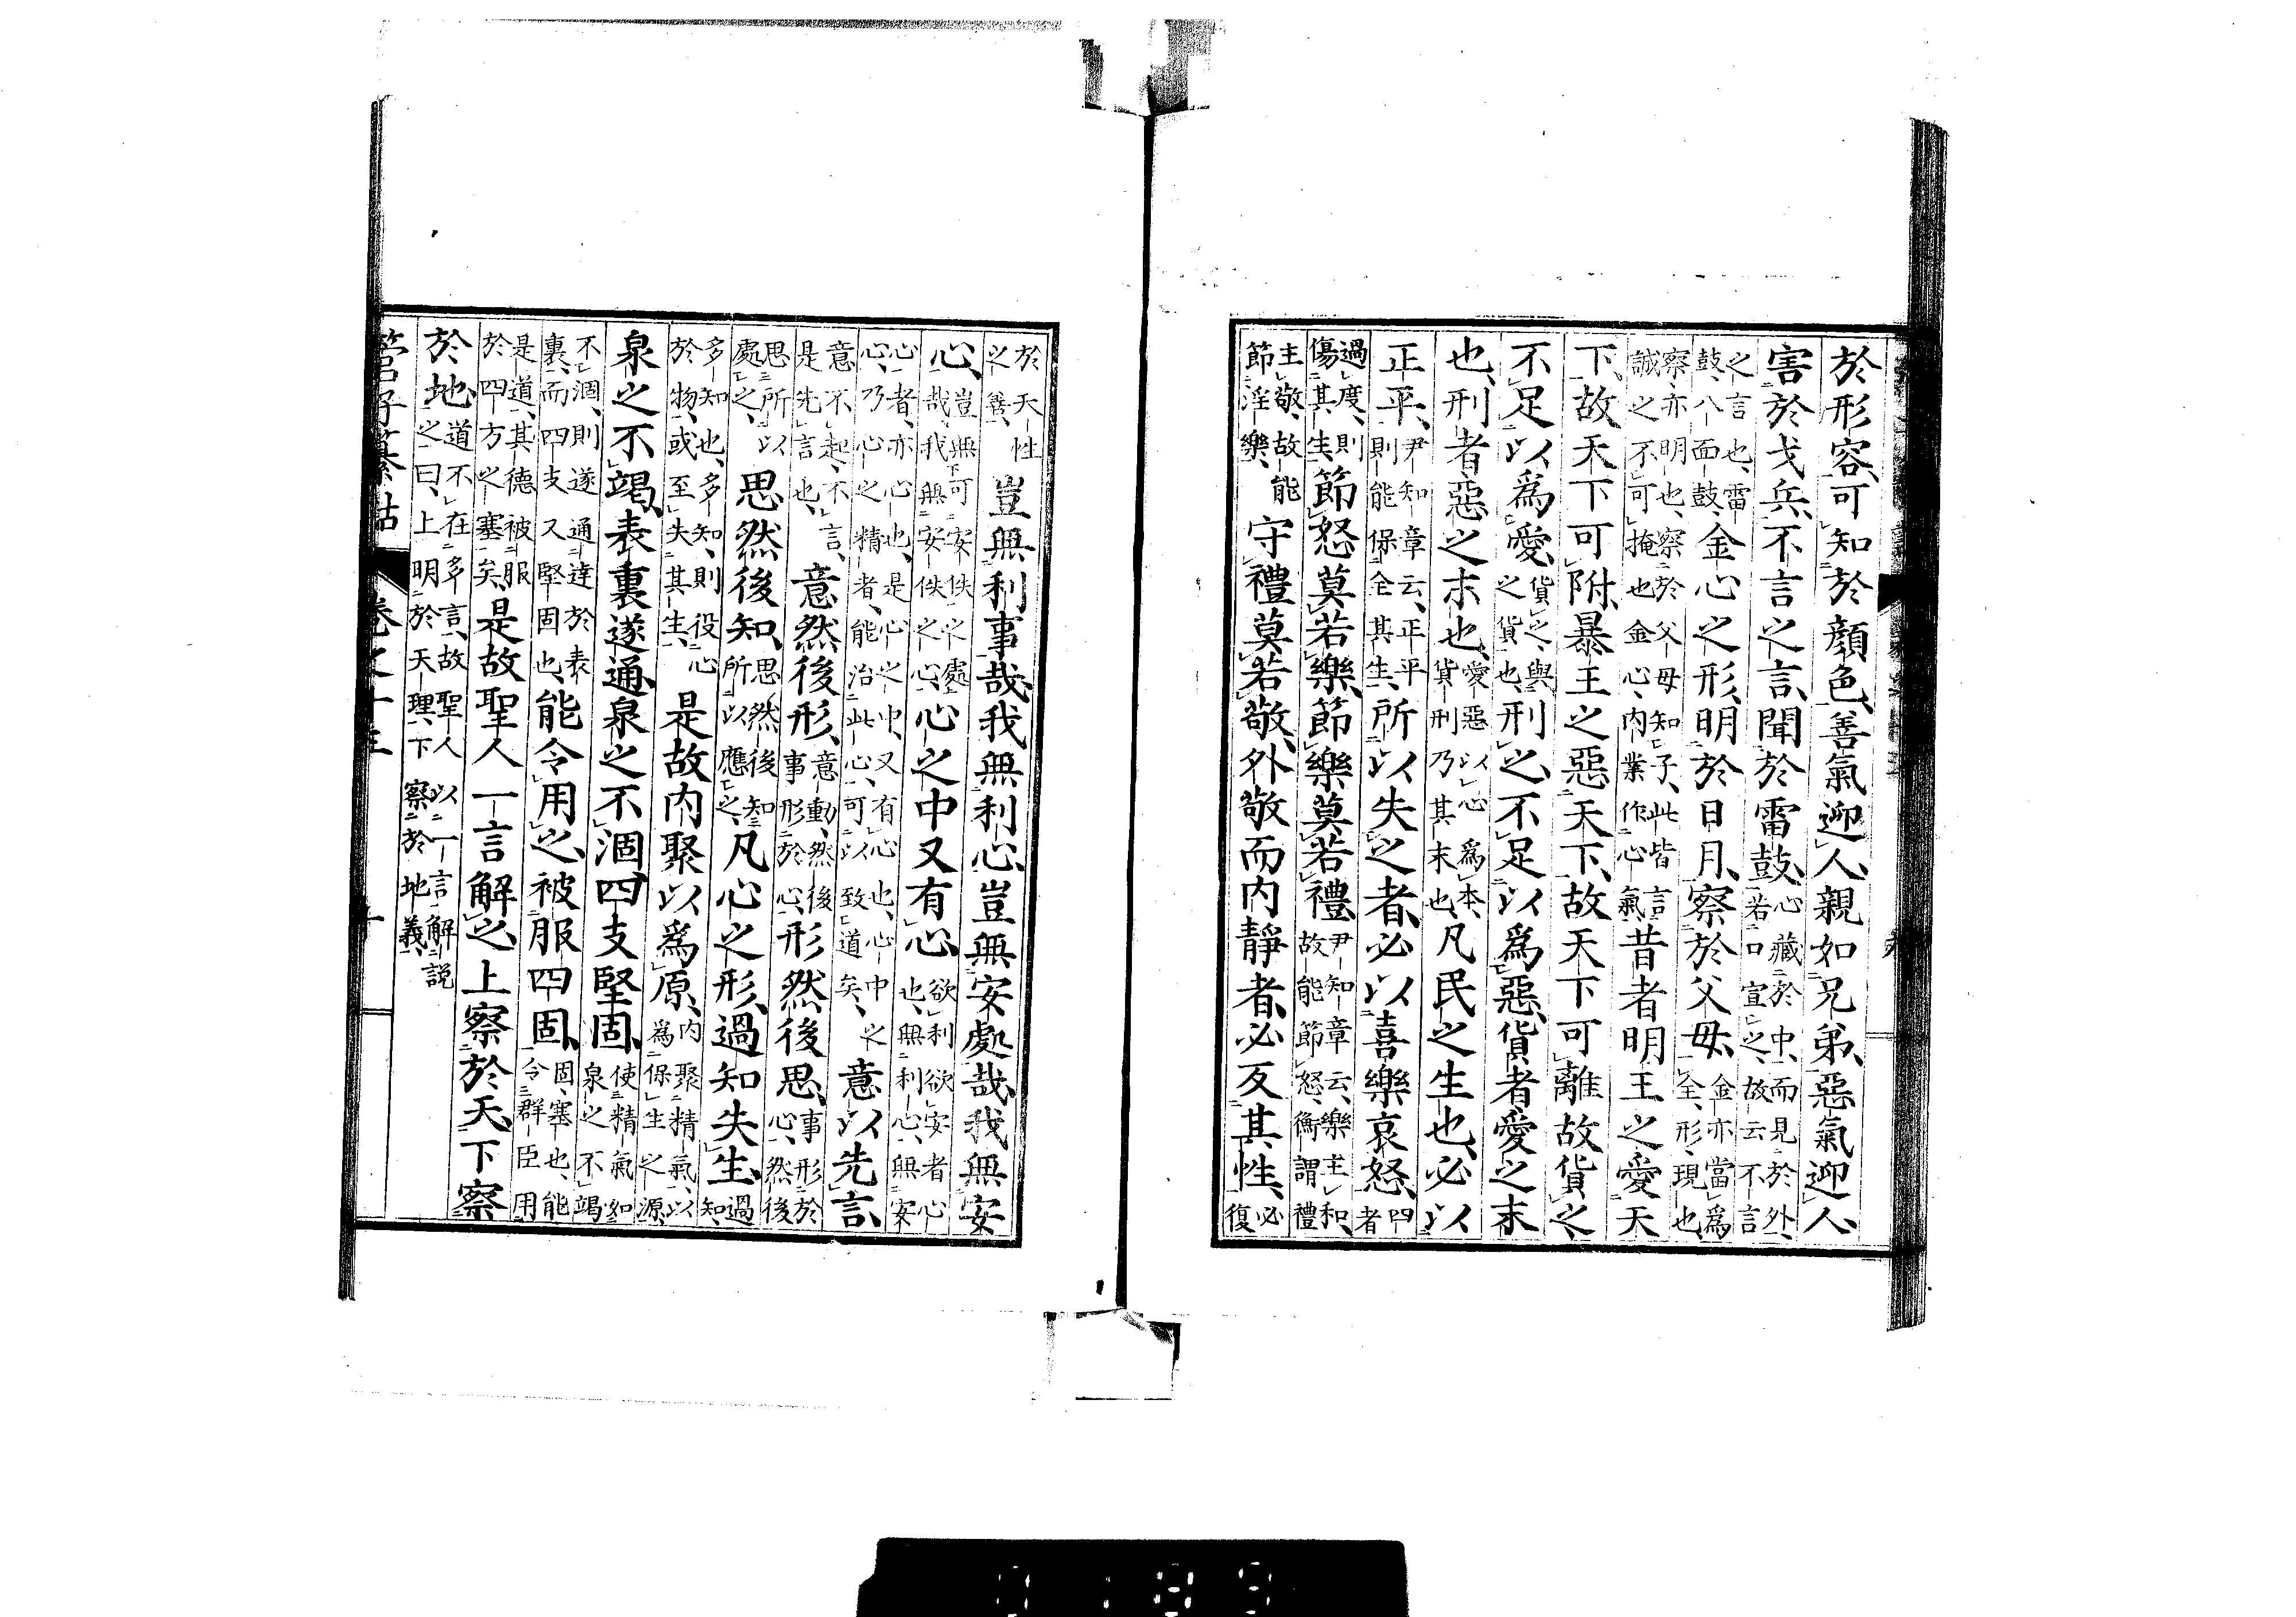 於形容、可知於顏色、善氣迎人、親如兄弟、惡氣迎人、
害於戈兵、不言之言、聞於雷鼓、心藏於中、而見於外、若口宣之、故云不言
之言也、雷鼓、八面鼓、金心之形、明於日月、察於父母、金亦當爲全、形、現也、
察、亦明也、察於父母知子、此皆言誠之不可掩也金心、內業作心氣昔者明王之愛天
下、故天下可附、暴王之惡天下、故天下可離故貨之、
不足以爲愛、貨之、與之貨也、刑之、不足以爲惡、貨者愛之末
也、刑者惡之末也、愛惡以心爲本、貨刑乃其末也、凡民之生也、必以
正平、尹知章云、正平則能保全其生、所以失之者、必以喜樂哀怒、四者
過度、則傷其生、節怒莫若樂、節樂莫若禮、尹知章云、樂主和、故能節怒、衡謂禮
主敬、故能節淫樂、守禮莫若敬、外敬而內靜者、必反其性、必復
於天性之善、豈無利事哉、我無利心、豈無安處哉、我無安
心、豈無可安佚之處哉、我無安佚之心、心之中又有心、欲利欲安者心也、無利心、無安
心者、亦心也、是心之中、又有心也、心中之心、乃心之精者、能治此心、可以致道矣、意以先言、
意不起、不言、是先言也、意然後形、意動、然後事形於心、形然後思、事形於心、然後
思所以處之、思然後知、思然後知所以應之、凡心之形、過知失生、過知、
多知也、多知、則役心於物、或至失其生、是故內聚以爲原、內聚精氣、以爲保生之源、
泉之不竭、表裏遂通、泉之不涸、四支堅固、使精氣如泉之不竭
不涸、則遂通達於表裏、而四支又堅固也、能令用之、被服四固、固、塞也、能令群臣用
是道、其德被服於四方之塞矣、是故聖人一言解之、上察於天、下察
於地、道不在多言、故聖人以一言解說之曰、上明於天理、下察於地義、
管子纂詁 卷之十三 十